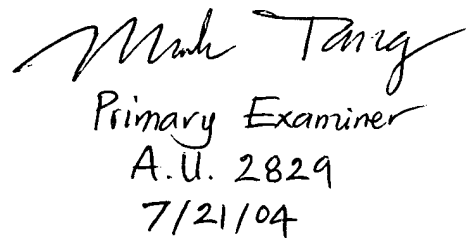 Minh Tang
Primary Examiner
A.U. 2829
7/21/04